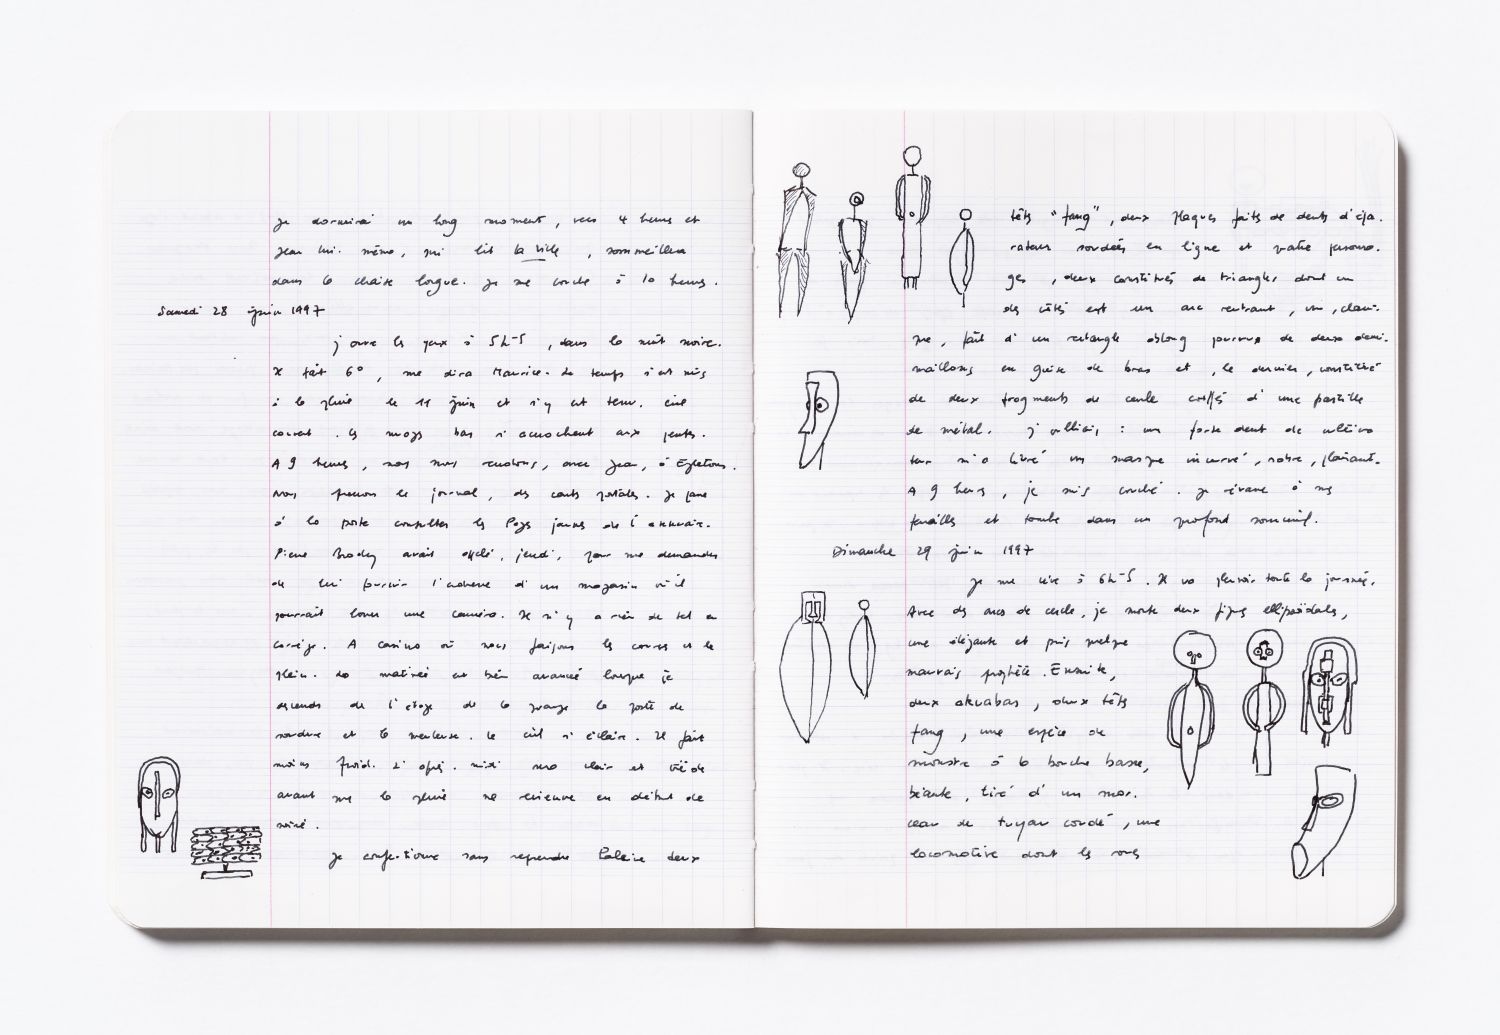 je dormirai un long moment, vers 4 heures et
Jean lui-même, qui lit la ville, sommeillera
dans la chaise longue. Je me couche à 10 heures.
Samedi 28 juin 1997
j'ouvre les yeux à 5h-5, dans la nuit noire.
Il fait 6°, me dira Maurice. Le temps s'est mis
à la pluie le 11 juin et s'y est tenu. Ciel
couvert. Les nuages bas s'accrochent aux pentes.
A 9 heures, nous nous rendons, avec Jean, à Egletons.
Nous prenons le journal, des cartes postales. Je passe
à la poste consulter les Pages jaunes de l'annuaire.
Pierre avait appelé, jeudi, pour me demander
de lui fournir l'adresse d'un magasin où il
pourrait louer une caméra. Il n'y a rien de tel en
Corrèze. A Casino où nous faisons les courses et le
plein. La matinée est bien avancée lorsque je
descends de l'étage de la grange le poste de
soudure et la meuleuse. Le ciel s'éclaire. Il fait
moins froid. L'après-midi sera clair et tiède
avant que la pluie ne revienne en début de
soirée.
Je confectionne sans reprendre haleine deux
têtes "fang", deux plaques faites de dents d'épa-
rateur soudées en ligne et quatre personna-
ges, deux constitués de triangles dont un
des côtés est un arc rentrant, un, clair-
me, fait d'un rectangle oblong pourvu de deux demi-
maillons en guise de bras et, le dernier, constitué
de deux fragments de cercle coiffés d'une pastille
de métal. J'oubliais : une forte dent de cultiva
teur m'a livré un masque incurvé, sobre, plaisant.
A 9 heures, je suis couché. Je rêvasse à mes
ferrailles et tombe dans un profond sommeil.
Dimanche 29 juin 1997
Je me lève à 6h-5. Il va pleuvoir toute la journée.
Avec des arcs de cercle, je monte deux figures ellipsoïdales,
une élégante et puis quelque
mauvais prophète. Ensuite,
deux akuabas, deux têtes
fang, une espèce de
monstre à la bouche basse,
béante, tiré d'un mor-
ceau de tuyau coudé, une
locomotive dont les roues